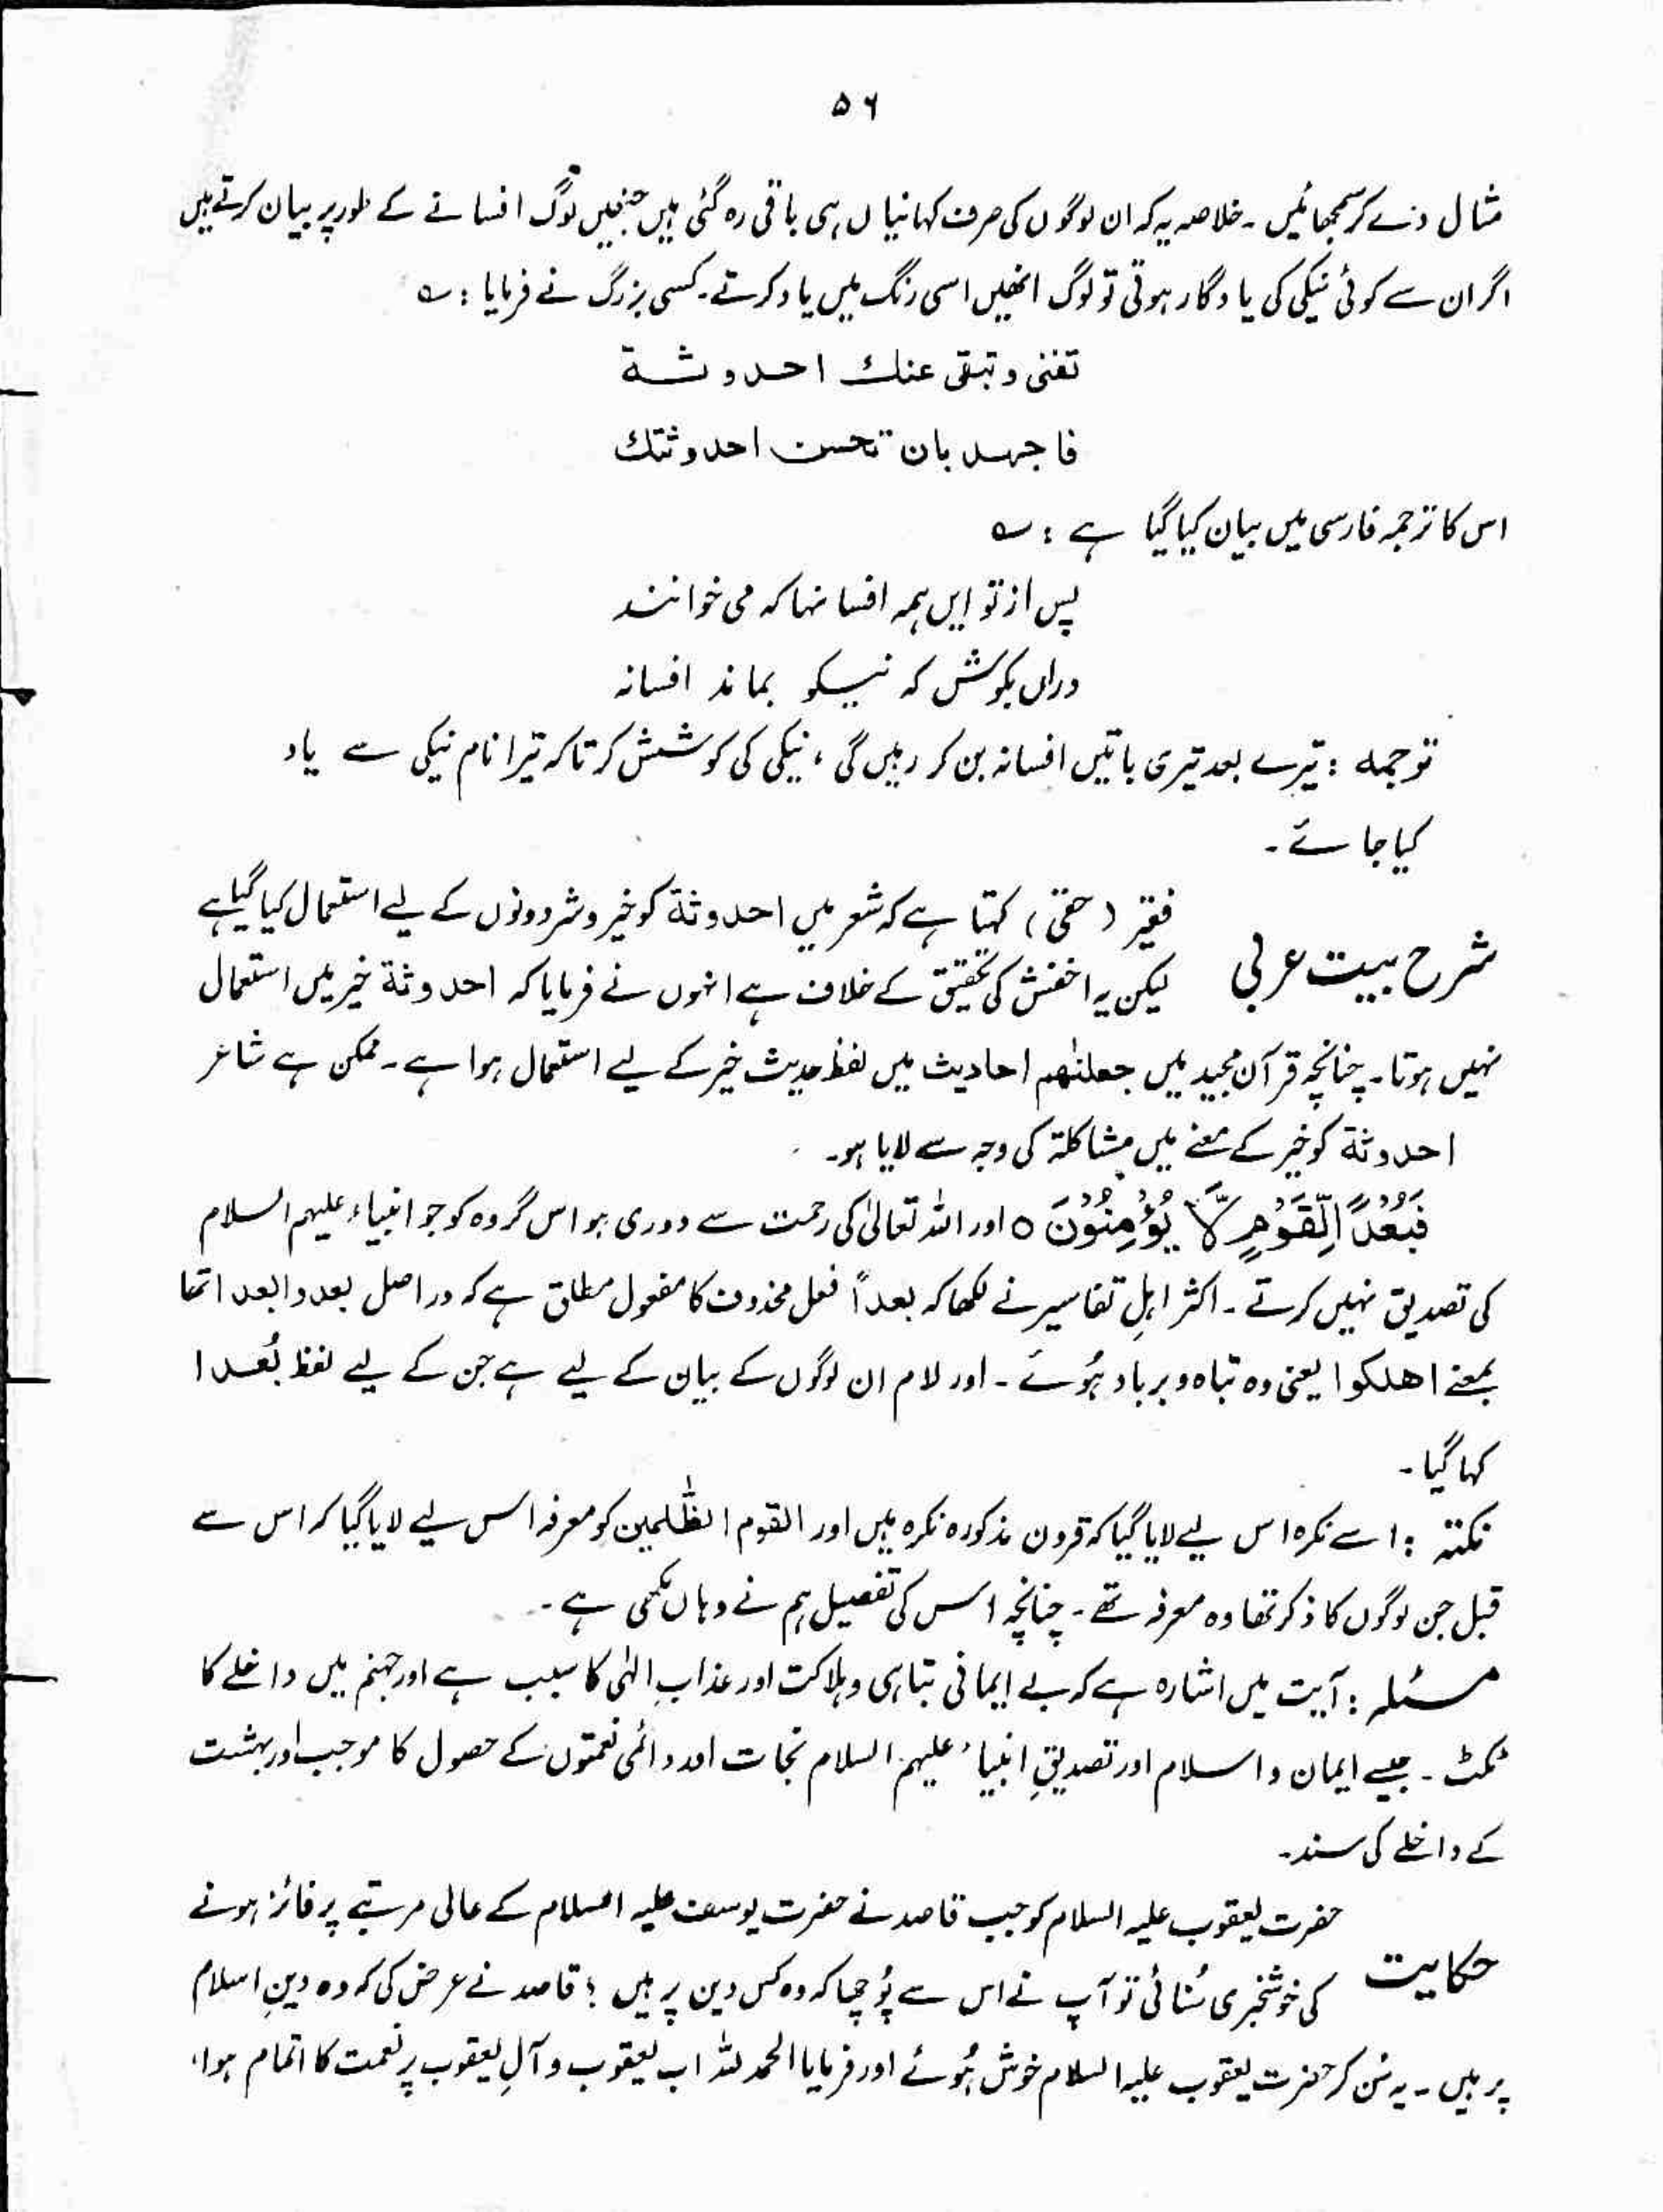 ۵۶
مثال دے کر سمجھائیں ۔ خلاصہ یہ کہ ان لوگوں کی صرف کہانیاں ہی باقی رہ گئی ہیں جنہیں لوگ افسانے کے طور پر بیان کرتے ہیں
اگر ان سے کوئی نیکی کی یادگار ہوتی تو لوگ انھیں اسی رنگ میں یاد کرتے۔ کسی بزرگ نے فرمایا : ؎
تفنی و تبقی عنك احدوثة
فاجهد بان تحسن احدوثتك
اس کا ترجمہ فارسی میں بیان کیا گیا ہے : ؎
پس از تو ایں ہمہ افسانہا کہ می خوانند
دراں بکوش کہ نیکو بماند افسانہ
ترجمہ : تیرے بعد تیری باتیں افسانہ بن کر رہیں گی ، نیکی کی کوشش کر تا کہ تیرا نام نیکی سے یاد
کیا جائے ۔
فقیر ( حقی ) کہتا ہے کہ شعر میں احدوثة کو خیر و شر دونوں کے لیے استعمال کیا گیا ہے
شرح بیت عربی لیکن یہ اخفش کی تحقیق کے خلاف ہے انہوں نے فرمایا کہ احدوثة خیر میں استعمال
نہیں ہوتا۔ چنانچہ قرآن مجید میں جعلنٰھم احادیث میں لفظ حدیث خیر کے لیے استعمال ہوا ہے ۔ ممکن ہے شاعر
احدوثة کو خیر کے معنے میں مشاکلة کی وجہ سے لایا ہو۔
فَبُعْدًا لِّقَوْمٍ لَّا يُؤْمِنُوْنَ ○ اور اللہ تعالیٰ کی رحمت سے دوری ہو اس گروہ کو جو انبیاء علیہم السلام
کی تصدیق نہیں کرتے ۔ اکثر اہلِ تفاسیر نے لکھا کہ بعداً فعل محذوف کا مفعول مطلق ہے کہ دراصل بعدوا بعدا تھا
بمعنے اھلکوا یعنی وہ تباہ و برباد ہُوئے ۔ اور لام ان لوگوں کے بیان کے لیے ہے جن کے لیے لفظ بُعدا
کہا گیا ۔
نکتہ : اسے نکرہ اس لیے لایا گیا کہ قرون مذکورہ نکرہ ہیں اور القوم الظّٰلمین کو معرفہ اس لیے لایا گیا کہ اس سے
قبل جن لوگوں کا ذکر تھا وہ معرفہ تھے ۔ چنانچہ اس کی تفصیل ہم نے وہاں لکھی ہے ۔
مسئلہ : آیت میں اشارہ ہے کہ بے ایمانی تباہی و ہلاکت اور عذابِ الٰہی کا سبب ہے اور جہنم میں داخلے کا
ٹکٹ ۔ جیسے ایمان و اسلام اور تصدیقِ انبیاء علیہم السلام نجات اور دائمی نعمتوں کے حصول کا موجب اور بہشت
کے داخلے کی سند۔
حضرت یعقوب علیہ السلام کو جب قاصد نے حضرت یوسف علیہ السلام کے عالی مرتبے پر فائز ہونے
حکایت کی خوشخبری سُنائی تو آپ نے اس سے پُوچھا کہ وہ کس دین پر ہیں ؛ قاصد نے عرض کی کہ وہ دینِ اسلام
پر ہیں ۔ یہ سُن کر حضرت یعقوب علیہ السلام خوش ہُوئے اور فرمایا الحمد للہ اب یعقوب و آلِ یعقوب پر نعمت کا اتمام ہوا ،